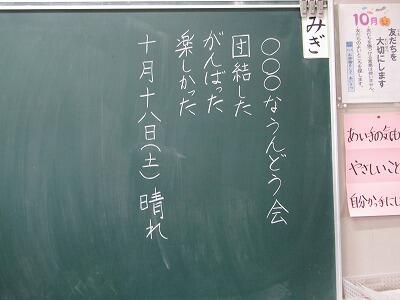 みぎ
○○○なうんどう会
団結した
がんばった
楽しかった
十月十八日(土) 晴れ
10月
友だちを
大切にします
あい手の気も
やさしいこと
自分から手にし